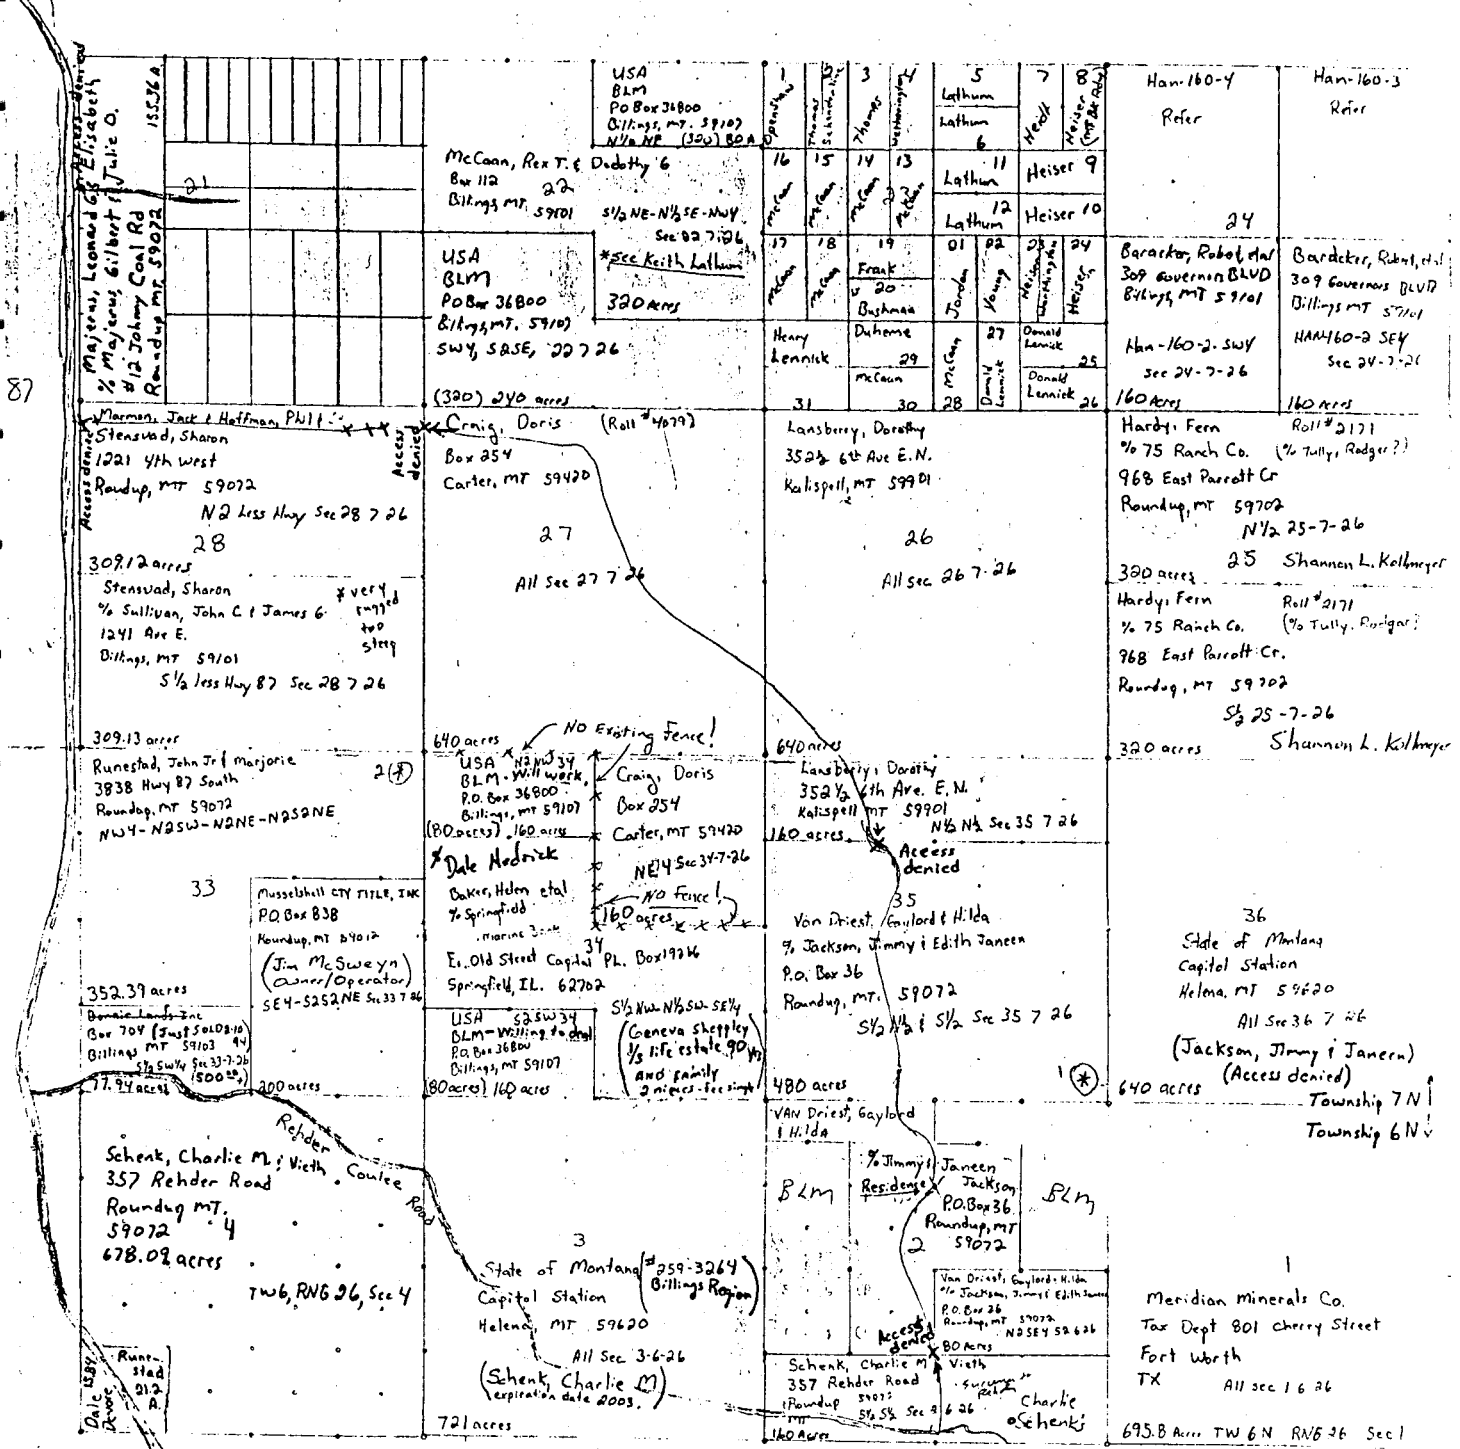 Access denied
Majerus, Leonard G & Elisabeth
% Majerus, Gilbert & Julie D.
#12 Johnny Coal Rd
Roundup MT 59072
155.36 A
21
87
USA
BLM
PO Box 36800
Billings, MT. 59107
N½ NE (320) 80 A
McCann, Rex T. & Dodothy G
Box 112
22
Billings MT. 59101
S½ NE-N½ SE-NW4
Sec 22 7 26
*See Keith Lathum
320 Acres
USA
BLM
PO Box 36800
Billings, MT. 59107
SW4, S2SE, 22 7 26
(320) 240 acres
1
Openshaw
2
Thomas
3
Thomas
4
5
Lathum
Lathum
6
7
Heiser
8
Heiser
16
McCann
15
McCann
14
McCann
13
McCann
23
11
Lathum
12
Lathum
Heiser 9
Heiser 10
17
McCann
18
McCann
19
Frank
20
Bushman
21
Jordan
22
Young
23
24
Heiser
Henry
Lennick
31
Duheme
29
McCann
30
McCann
28
27
Donald
Lennick
Donald
Lennick
25
Donald
Lennick 26
Han-160-4
Refer
Han-160-3
Refer
24
Baracker, Robert, etal
309 Governors BLVD
Billings MT 59101
Han-160-2-SW4
Sec 24-7-26
160 Acres
Baracker, Robert, etal
309 Governors BLVD
Billings MT 59101
HAN160-2 SE4
Sec 24-7-26
160 Acres
Marman, Jack & Hoffman, Phil
Stensvad, Sharon
1221 4th West
Roundup, MT 59072
N2 Less Hwy Sec 28 7 26
Access denied
Access denied
28
309.12 acres
Stensvad, Sharon
% Sullivan, John C & James G.
1241 Ave E.
Billings, MT 59101
S½ less Hwy 87 Sec 28 7 26
* very
rugged
too
steep
309.13 acres
Craig, Doris (Roll #4079)
Box 254
Carter, MT 59420
27
All Sec 27 7 26
640 acres
Lansberry, Dorothy
352½ 6th Ave E.N.
Kalispell, MT 59901
26
All sec 26 7-26
640 acres
Hardy, Fern Roll #2171
% 75 Ranch Co. (% Tully, Rodger??)
968 East Parrott Cr
Roundup, MT 59702
N½ 25-7-26
25 Shannon L. Kollmeyer
320 acres
Hardy, Fern Roll #2171
% 75 Ranch Co. (% Tully, Rodger?
968 East Parrott Cr.
Roundup, MT 59702
S½ 25-7-26
320 acres Shannon L. Kollmeyer
Runestad, John Jr & Marjorie
3838 Hwy 87 South
Roundup, MT 59072
NW4-N2SW-N2NE-N2S2NE
2(*)
33
352.39 acres
Musselshell CTY TITLE, INC
P.O. Box 838
Roundup, MT 59072
(Jim McSweyn)
(Owner/Operator)
SE4-S2S2NE Sec 33 7 26
200 acres
Box 704 (Just SOLD 8-10
Billings MT 59103 94)
S½ SW¼ Sec 33-7-26
(500 00
77.94 acres
NO Existing Fence!
USA N2NW34
BLM-Will work.
P.O. Box 36800
Billings, MT 59107
(80 acres) 160 acres
Craig, Doris
Box 254
Carter, MT 59420
NE4 Sec 34-7-26
NO Fence!
160 acres
* Dale Hedrick
Baker, Helen etal
% Springfield
marine Bank
34
E. Old Street Capitol PL. Box
Springfield, IL. 62702
S½ NW-N½ SW-SE¼
USA S2SW34
BLM-Willing to deal
P.O. Box 36800
Billings, MT 59107
(80 acres) 160 acres
(Geneva Sheppley
⅓ life estate 90 yrs
AND Family
2 nieces-fee simple)
Lansberry, Dorothy
352½ 6th Ave. E.N.
Kalispell MT 59901
N½ N½ Sec 35 7 26
160 acres
Access
denied
35
Van Driest, Gaylord & Hilda
% Jackson, Jimmy & Edith Janeen
P.O. Box 36
Roundup, MT. 59072
S½ N½ & S½ Sec 35 7 26
480 acres
1(*)
36
State of Montana
Capitol Station
Helena, MT 59620
All Sec 36 7 26
(Jackson, Jimmy & Janeen)
(Access denied)
640 acres
Township 7N
Township 6N
Rehder
Coulee
Road
Schenk, Charlie M & Vieth
357 Rehder Road
Roundup MT.
59072 4
678.09 acres
TW6, RNG 26, Sec 4
Dale Devore
15.84
Rune-
stad
21.2
A.
3
State of Montana (#259-3264
Capitol Station Billings Region)
Helena, MT 59620
All Sec 3-6-26
(Schenk, Charlie M)
(expiration date 2003.
721 acres
VAN Driest, Gaylord
& Hilda
BLM
% Jimmy & Janeen
Residence Jackson
P.O. Box 36
Roundup, MT
2 59072
BLM
Van Driest, Gaylord & Hilda
% Jackson, Jimmy & Edith Janeen
P.O. Box 36
Roundup, MT 59072
N2SE4 S2 6 26
80 Acres
Access
denied
Schenk, Charlie M Vieth
357 Rehder Road
Roundup 59072
MT S½ S½ Sec 2 6 26
160 Acres
Charlie
Schenk's
1
Meridian Minerals Co.
Tax Dept 801 Cherry Street
Fort Worth
TX All sec 1 6 26
695.8 Acres TW 6 N RNG 26 Sec 1